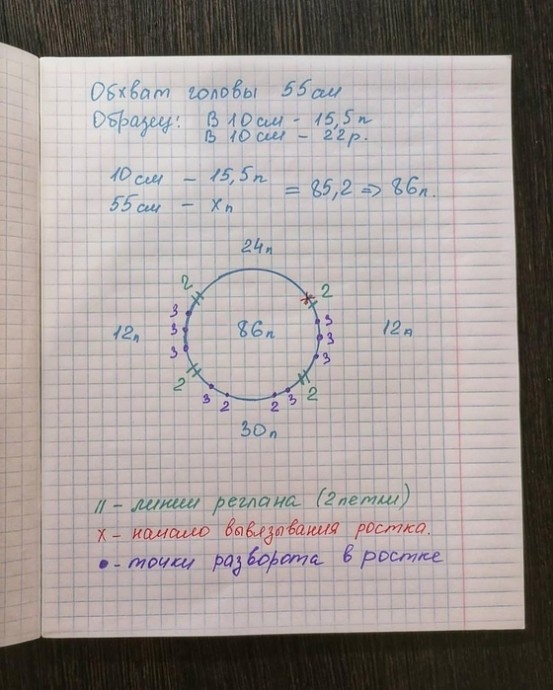 Обхват головы 55см
Образец: В 10см - 15,5п
В 10см - 22р.
10см - 15,5п
55см - хп
= 85,2 => 86п.
24п
2 2
3 3
3 3
3 3
12п 86п 12п
2 2
3 2 2 3
30п
|| - линии реглана (2 петли)
х - начало вывязывания ростка.
• - точки разворота в ростке